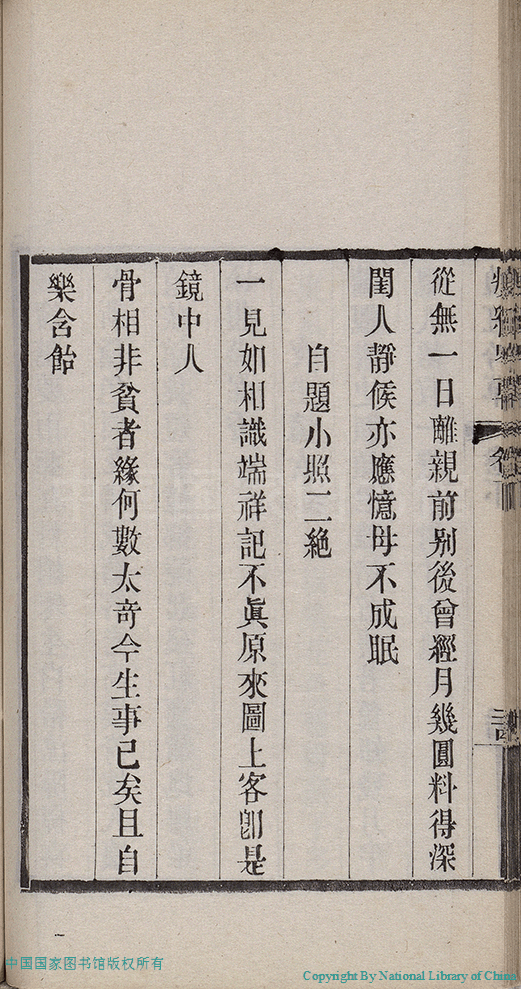 從無一日離親前别後曾經月幾圓料得深
閨人靜候亦應憶母不成眠
自題小照二絶
一見如相識端祥記不眞原來圖上客卽是
鏡中人
骨相非貧者緣何數太奇今生事已矣且自
樂含飴
中国国家图书馆版权所有
Copyright By National Library of China